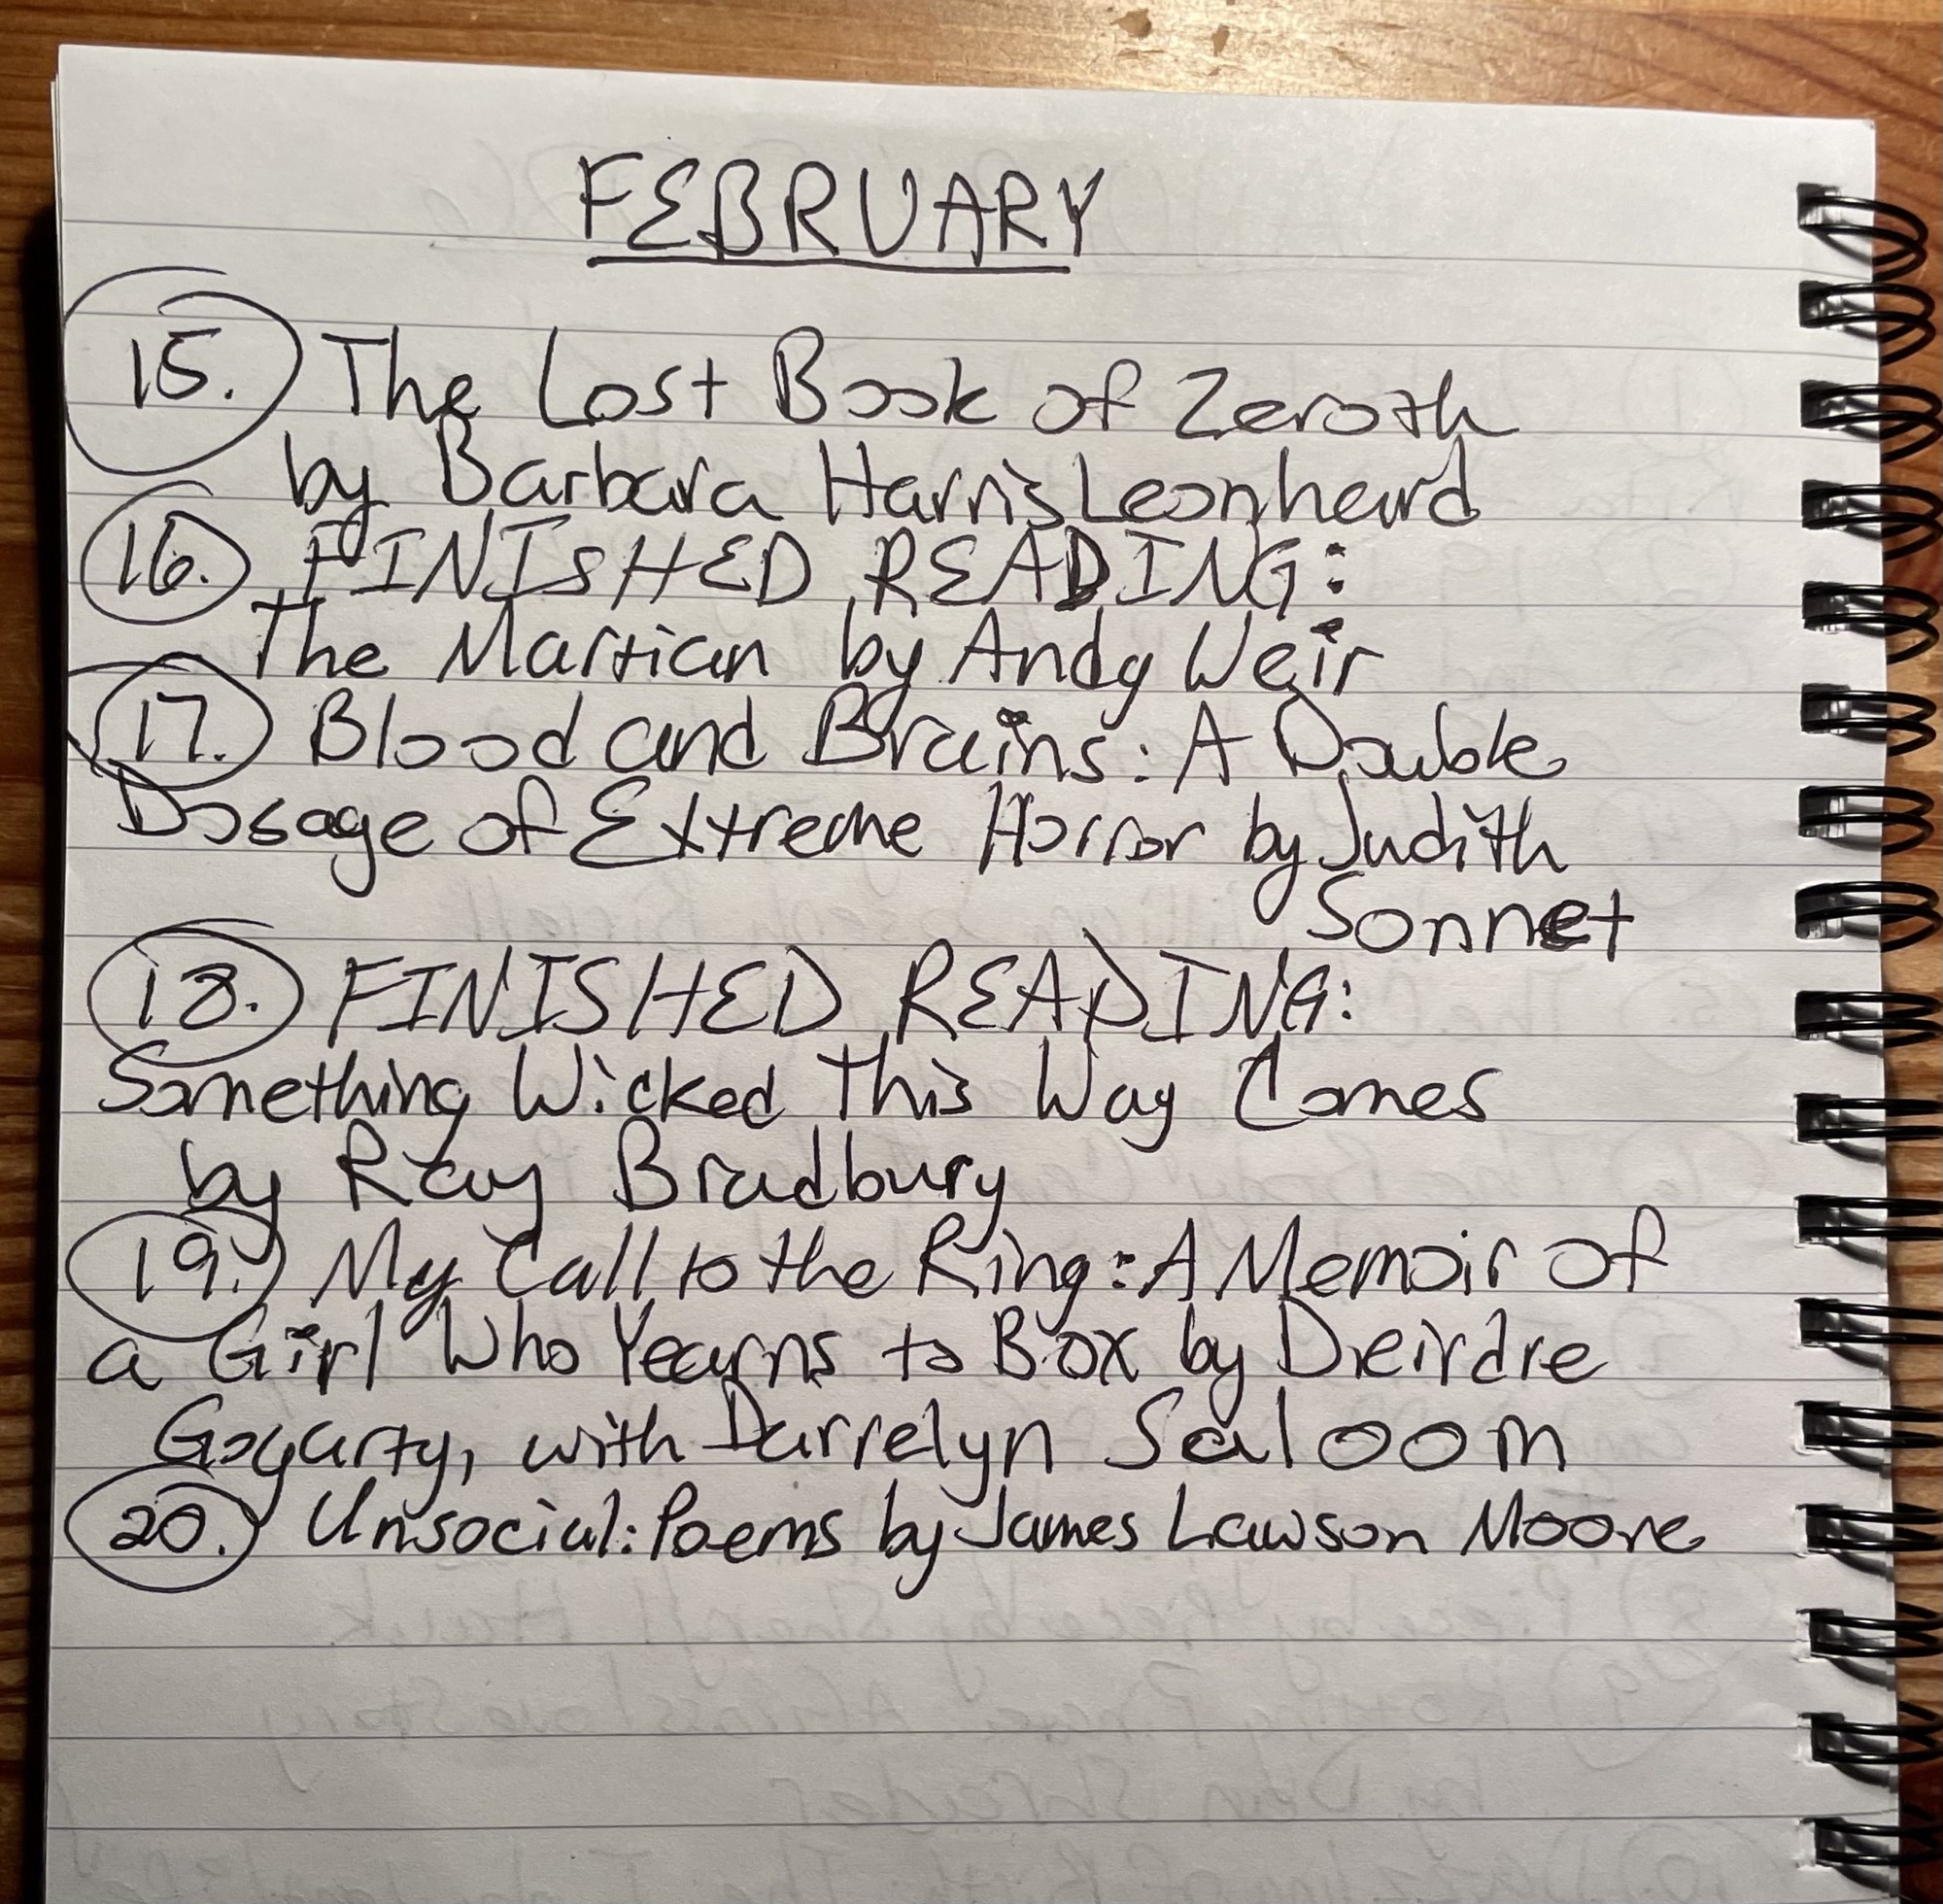 FEBRUARY
15. The Lost Book of Zeroth
by Barbara Harris Leonhard
16. FINISHED READING:
The Martian by Andy Weir
17. Blood and Brains: A Double
Dosage of Extreme Horror by Judith
Sonnet
18. FINISHED READING:
Something Wicked This Way Comes
by Ray Bradbury
19. My Call to the Ring: A Memoir of
a Girl Who Yearns to Box by Deirdre
Gogarty, with Darrelyn Saloom
20. Unsocial: Poems by James Lawson Moore